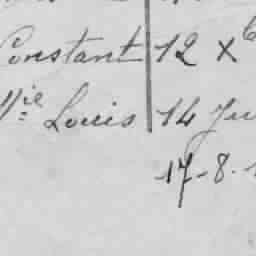 Constant 12 Xb
Mie Louis 14 Ju
17-8-